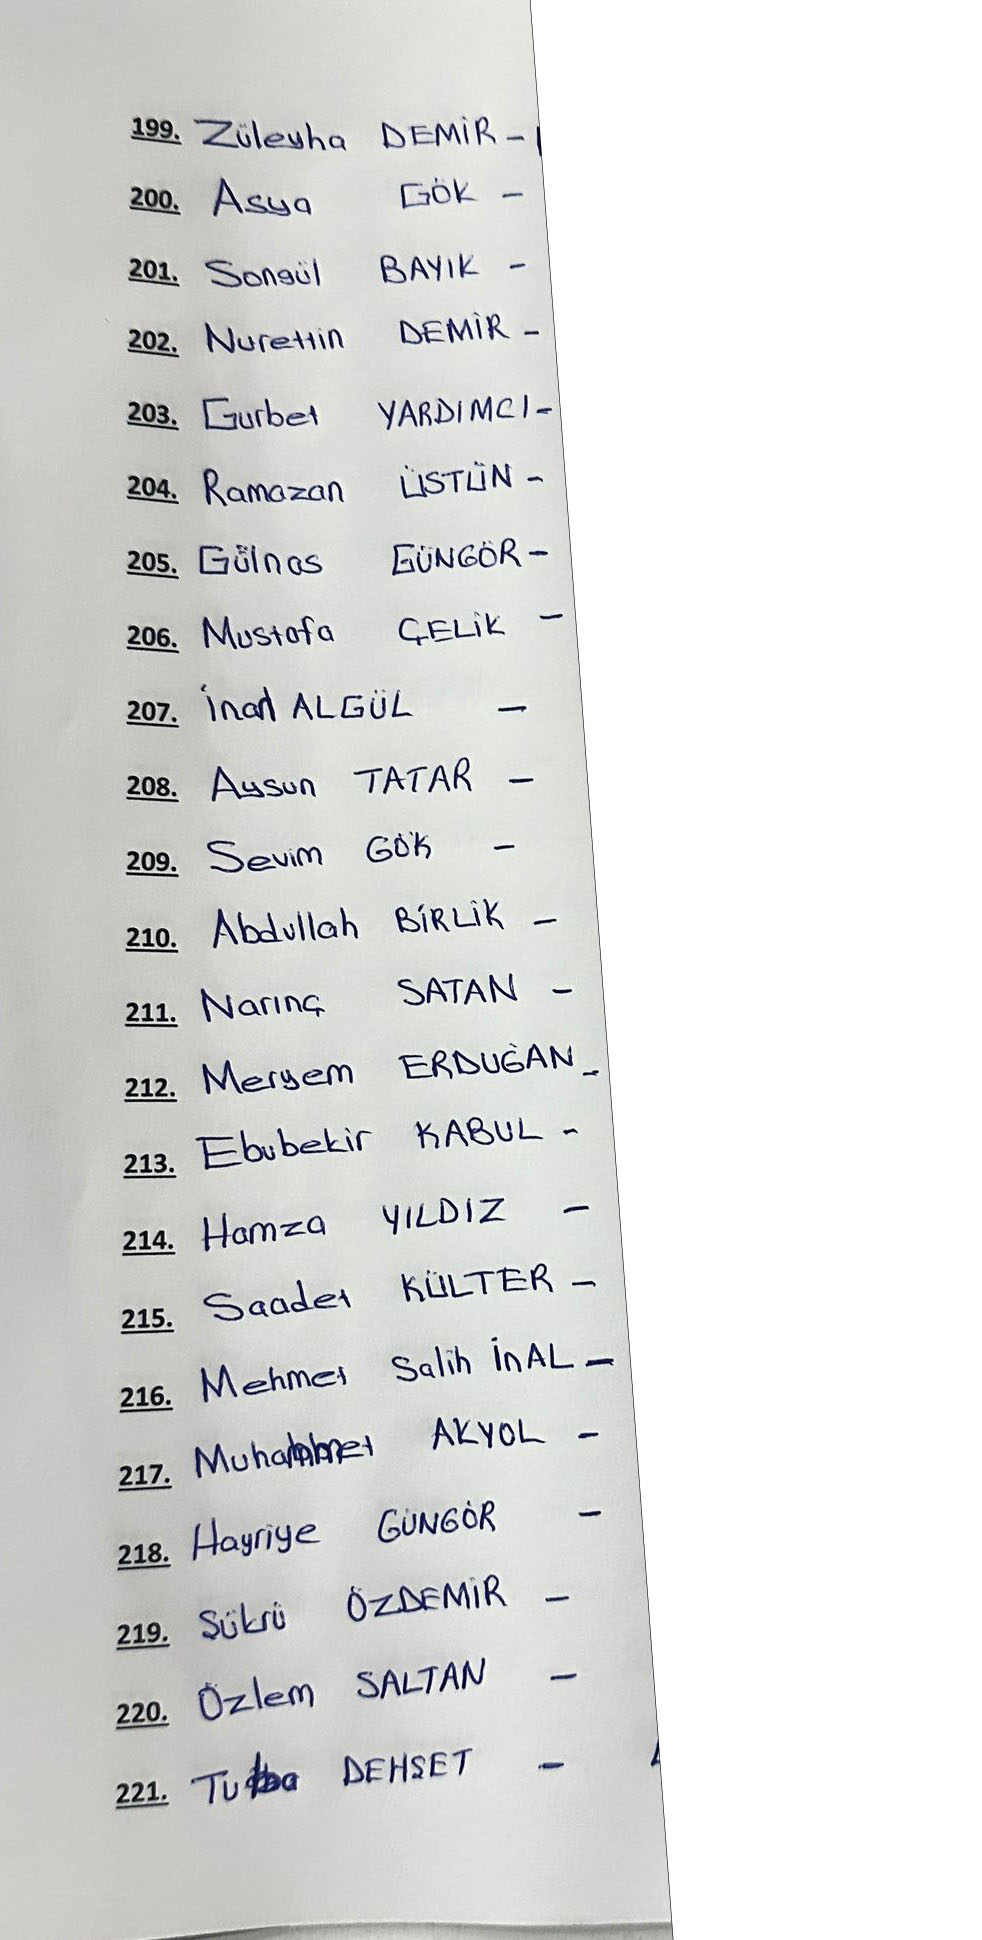 199. Züleyha DEMİR -
200. Asya GÖK -
201. Songül BAYIK -
202. Nurettin DEMİR -
203. Gurbet YARDIMCI -
204. Ramazan ÜSTÜN -
205. Gülnas GÜNGÖR -
206. Mustafa ÇELİK -
207. İnan ALGÜL -
208. Aysun TATAR -
209. Sevim GÖK -
210. Abdullah BİRLİK -
211. Narınç SATAN -
212. Meryem ERDUĞAN -
213. Ebubekir KABUL -
214. Hamza YILDIZ -
215. Saadet KÜLTER -
216. Mehmet Salih İnAL -
217. Muhammet AKYOL -
218. Hayriye GÜNGÖR -
219. Sükrü ÖZDEMİR -
220. Özlem SALTAN -
221. DEHŞET -